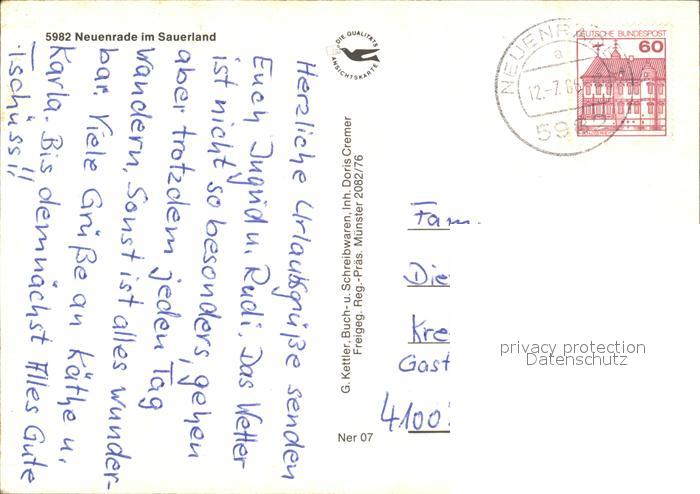 5982 Neuenrade im Sauerland
Herzliche Urlaubsgrüße senden
Euch Ingrid u. Rudi. Das Wetter
ist nicht so besonders, gehen
aber trotzdem jeden Tag
wandern. Sonst ist alles wunder-
bar. Viele Grüße an Käthe u.
Karla. Bis demnächst Alles Gute
Tschüss!!
DIE QUALITÄTS
ANSICHTSKARTE
G. Kettler, Buch- u. Schreibwaren, Inh. Doris Cremer
Freigeg. Reg.-Präs. Münster 2082/76
Ner 07
DEUTSCHE BUNDESPOST
60
12.-7.
Fam.
Die
Kre
Gast
4100
privacy protection
Datenschutz